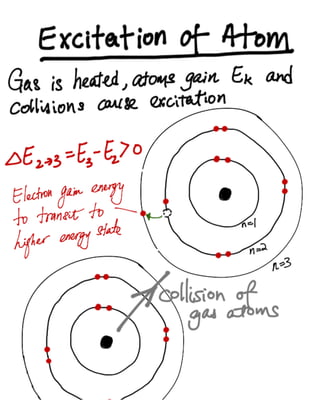 Excitation of Atom
Gas is heated, atoms gain Ek and
collisions cause excitation
ΔE2→3 = E3 - E2 > 0
Electron gain energy
to transit to
higher energy state
n=1
n=2
n=3
collision of
gas atoms